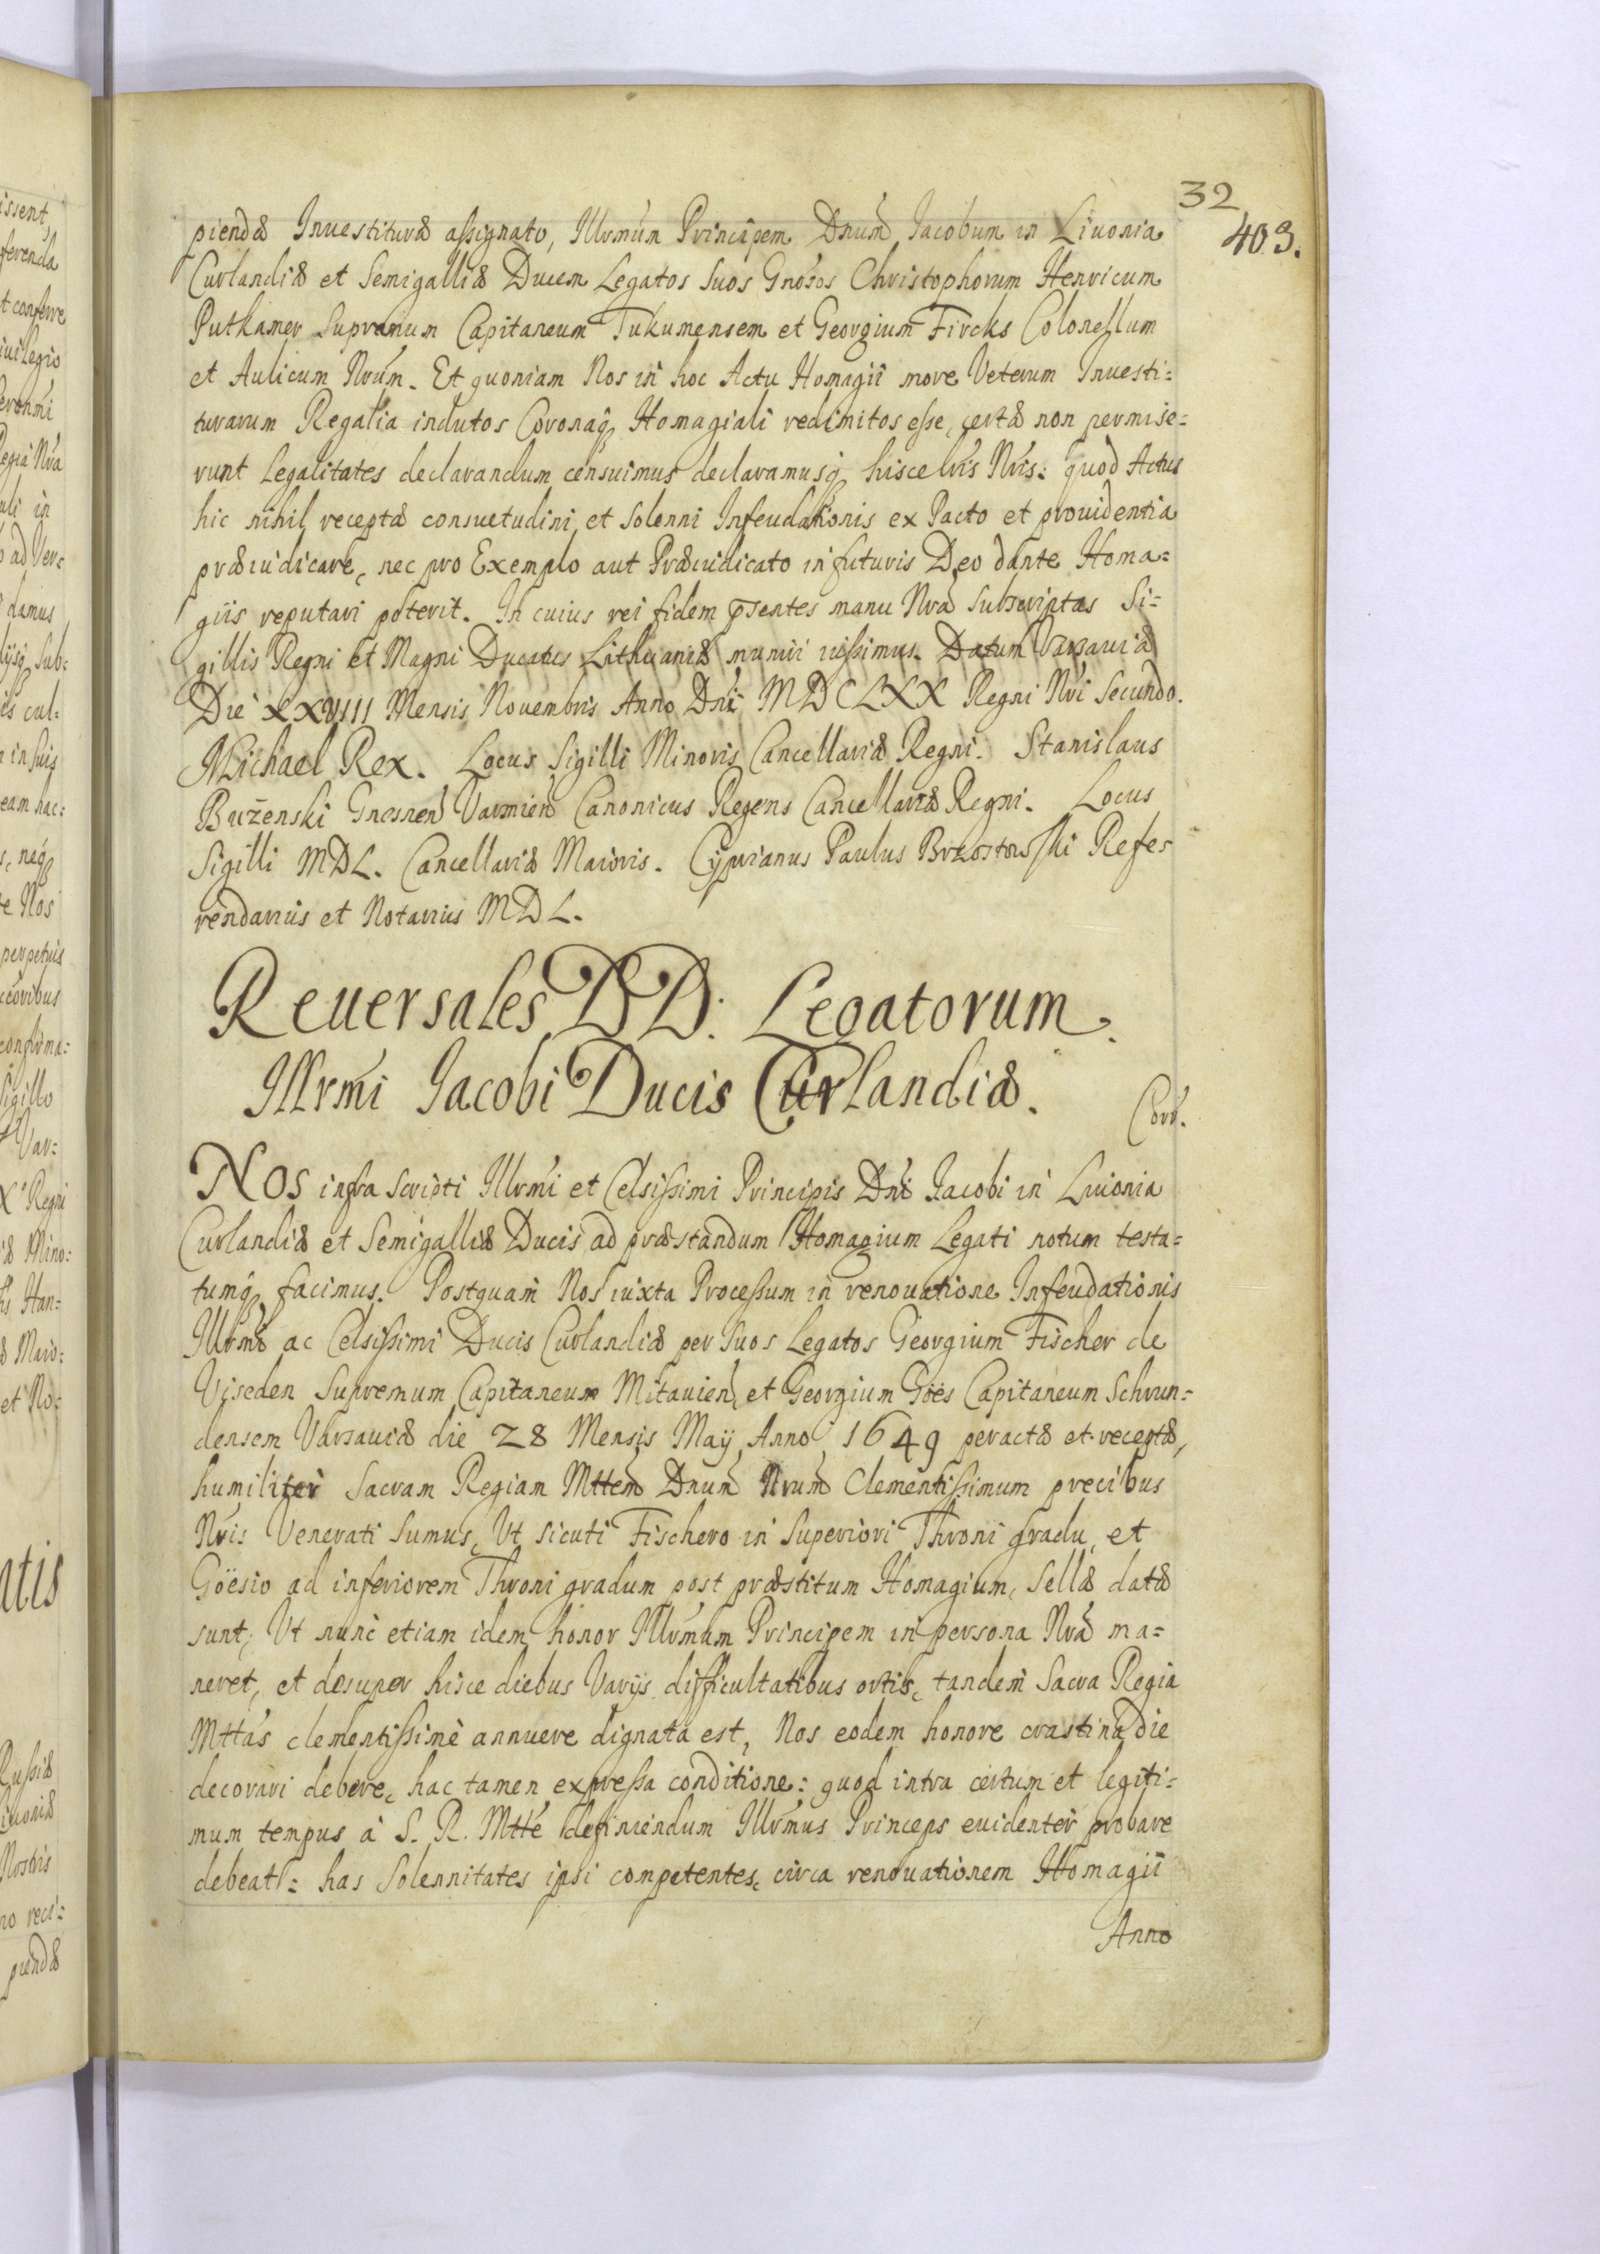 32
403.
piendæ Inuestituræ assignato, Illrmum Principem Dnum Iacobum in Liuonia
Curlandiæ et Semigalliæ Ducem Legatos suos Gnosos Christophorum Henricum
Putkamer Supremum Capitaneum Tukumensem et Georgium Fircks Colonellum
et Aulicum Nrum. Et quoniam Nos in hoc Actu Homagii more Veterum Inuesti=
turarum Regalia indutos Coronaq Homagiali redimitos esse, certæ non permise=
runt Legalitates declarandum censuimus declaramusq hisce lris Nris: quod Actus
hic nihil receptæ consuetudini et solenni Infeudationis ex Pacto et prouidentia
præiudicare, nec pro Exemplo aut Præiudicato in futuris Deo dante Homa=
giis reputari poterit. In cuius rei fidem pntes manu Nra subscriptas Si=
gillis Regni et Magni Ducatus Lithuaniæ muniri iussimus. Datum Varsauiæ
Die XXVIII Mensis Nouembris Anno Dni MDCLXX Regni Nri Secundo.
Michael Rex. Locus Sigilli Minoris Cancellariæ Regni. Stanislaus
Bużenski Gnesnen Varmien Canonicus Regens Cancellariæ Regni. Locus
Sigilli MDL. Cancellariæ Maioris. Cyprianus Paulus Brzostowski Refe=
rendarius et Notarius MDL.
Reuersales DD: Legatorum
Illrmi Iacobi Ducis Curlandiæ.
Corr.
Nos infra scripti Illrmi et Celsissimi Principis Dni Iacobi in Liuonia
Curlandiæ et Semigalliæ Ducis ad præstandum Homagium Legati notum testa=
tumq facimus. Postquam Nos iuxta Processum in renouatione Infeudationis
Illrmi ac Celsissimi Ducis Curlandiæ per suos Legatos Georgium Fischer de
Viseden Supremum Capitaneum Mitauien, et Georgium Göes Capitaneum Schrun=
densem Varsauiæ die 28 Mensis Maÿ Anno 1649 peractæ et receptæ,
humiliter Sacram Regiam Mttem Dnum Nrum Clementissimum precibus
Nris Venerati sumus, Vt sicuti Fischero in superiori Throni gradu, et
Göesio ad inferiorem Throni gradum post præstitum Homagium, sellæ datæ
sunt, Vt nunc etiam idem honor Illrmum Principem in persona Nra ma=
neret, et desuper hisce diebus Varÿs difficultatibus ortis, tandem Sacra Regia
Mttas clementissime annuere dignata est, Nos eodem honore crastina die
decorari debere, hac tamen expressa conditione: quod intra certum et legiti=
mum tempus à S. R. Mtte definiendum Illrmus Princeps euidenter probare
debeat: has solennitates ipsi competentes, circa renouationem Homagii
Anno